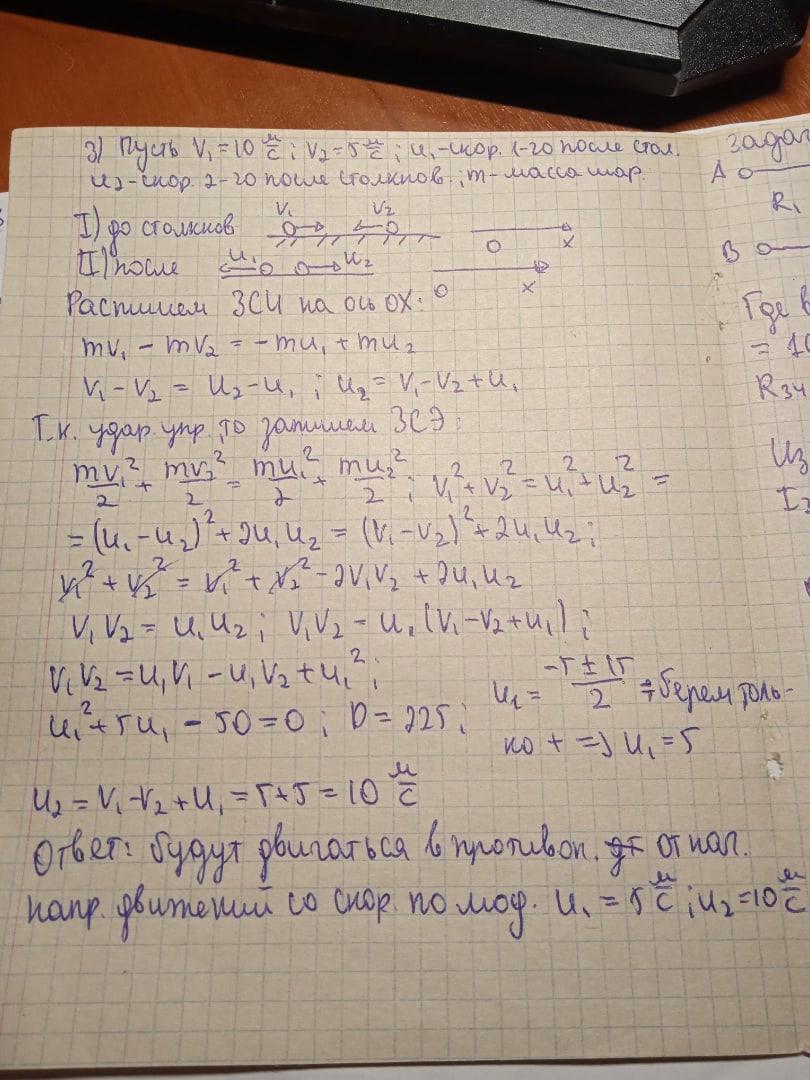 3) Пусть V₁ = 10 м/с ; V₂ = 5 м/с ; u₁ - скор. 1-го после стол.
u₂ - скор. 2-го после столкнов. ; m - масса шар.
I) до столкнов V₁ V₂ O x
II) после u₁ u₂ O x
Распишем ЗСИ на ось OX:
mV₁ - mV₂ = -mu₁ + mu₂
V₁ - V₂ = u₂ - u₁ ; u₂ = V₁ - V₂ + u₁
Т.к. удар. упр., то запишем ЗСЭ:
mV₁²/2 + mV₂²/2 = mu₁²/2 + mu₂²/2 ; V₁² + V₂² = u₁² + u₂² =
= (u₁ - u₂)² + 2u₁u₂ = (V₁ - V₂)² + 2u₁u₂ ;
V₁² + V₂² = V₁² + V₂² - 2V₁V₂ + 2u₁u₂
V₁V₂ = u₁u₂ ; V₁V₂ = u₁(V₁ - V₂ + u₁) ;
V₁V₂ = u₁V₁ - u₁V₂ + u₁² ;
u₁² + 5u₁ - 50 = 0 ; D = 225 ;
u₁ = (-5 ± 15)/2 => берем толь-
ко + => u₁ = 5
u₂ = V₁ - V₂ + u₁ = 5 + 5 = 10 м/с
Ответ: будут двигаться в противоп. от нач.
напр. движений со скор. по мод. u₁ = 5 м/с ; u₂ = 10 м/с
A
R₁
B
Где
= 10